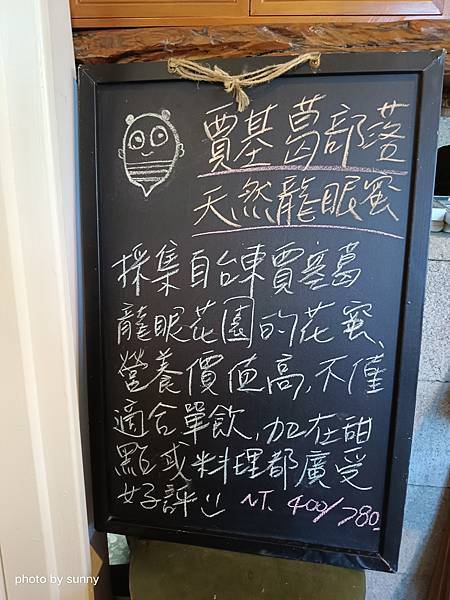 賈基葛部落
天然龍眼蜜
採集自台東賈基葛
龍眼花園的花蜜、
營養價值高,不僅
適合單飲,加在甜
點或料理都廣受
好評 NT. 400/780
photo by sunny